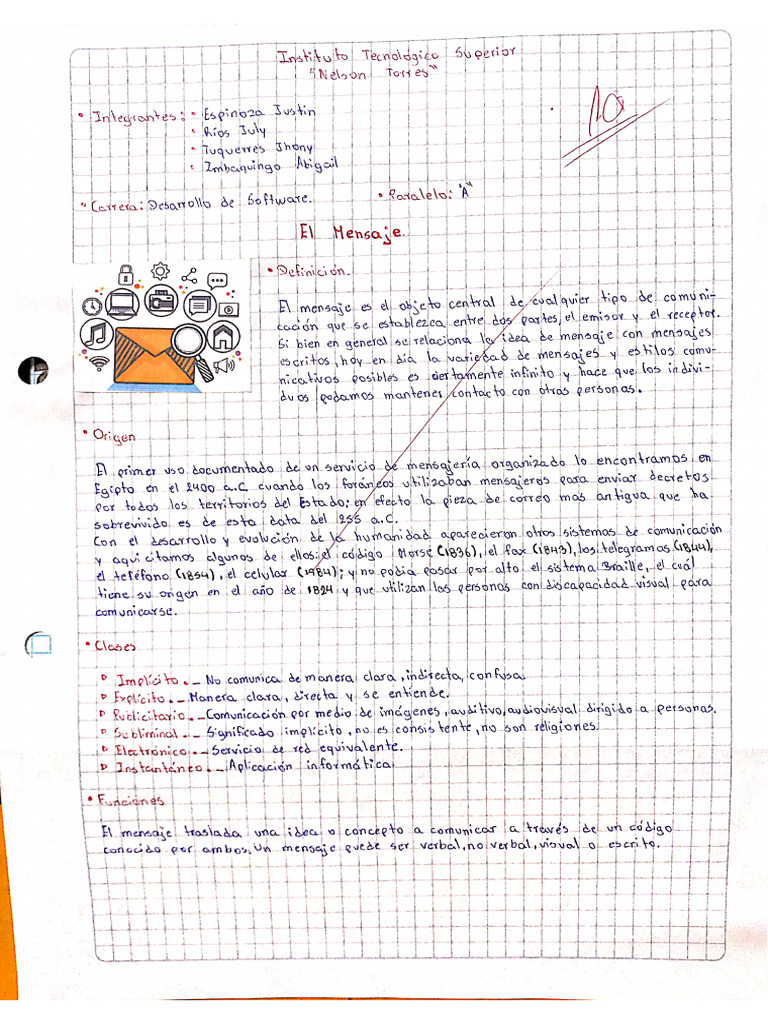 Instituto Tecnológico Superior
"Nelson Torres"
10
• Integrantes: • Espinoza Justin
• Ríos July
• Tuquerres Jhony
• Imbaquingo Abigail
• Carrera: Desarrollo de Software.
• Paralelo: "A"
El Mensaje.
• Definición.
El mensaje es el objeto central de cualquier tipo de comuni-
cación que se establezca entre dos partes, el emisor y el receptor.
Si bien en general se relaciona la idea de mensaje con mensajes
escritos, hoy en día la variedad de mensajes y estilos comu-
nicativos posibles es ciertamente infinito y hace que los indivi-
duos podamos mantener contacto con otras personas.
• Origen
El primer uso documentado de un servicio de mensajería organizado lo encontramos en
Egipto en el 2400 a.C cuando los foráneos utilizaban mensajeros para enviar decretos
por todos los territorios del Estado; en efecto la pieza de correo mas antigua que ha
sobrevivido es de esta data del 255 a.C.
Con el desarrollo y evolución de la humanidad aparecieron otros sistemas de comunicación
y aqui citamos algunos de ellos: el código Morse (1836), el fax (1843), los telegramas (1844),
el teléfono (1854), el celular (1984); y no podia pasar por alto el sistema Braille, el cuál
tiene su origen en el año de 1824 y que utilizan las personas con discapacidad visual para
comunicarse.
• Clases
▷ Implícito._ No comunica de manera clara, indirecta, confusa.
▷ Explícito._ Manera clara, directa y se entiende.
▷ Publicitario._ Comunicación por medio de imágenes, auditivo, audiovisual dirigido a personas.
▷ Subliminal._ Significado implícito, no es consistente, no son religiones.
▷ Electrónico._ Servicio de red equivalente.
▷ Instantáneo._ Aplicación informática.
• Funciones
El mensaje traslada una idea o concepto a comunicar a través de un código
conocido por ambos. Un mensaje puede ser verbal, no verbal, visual o escrito.